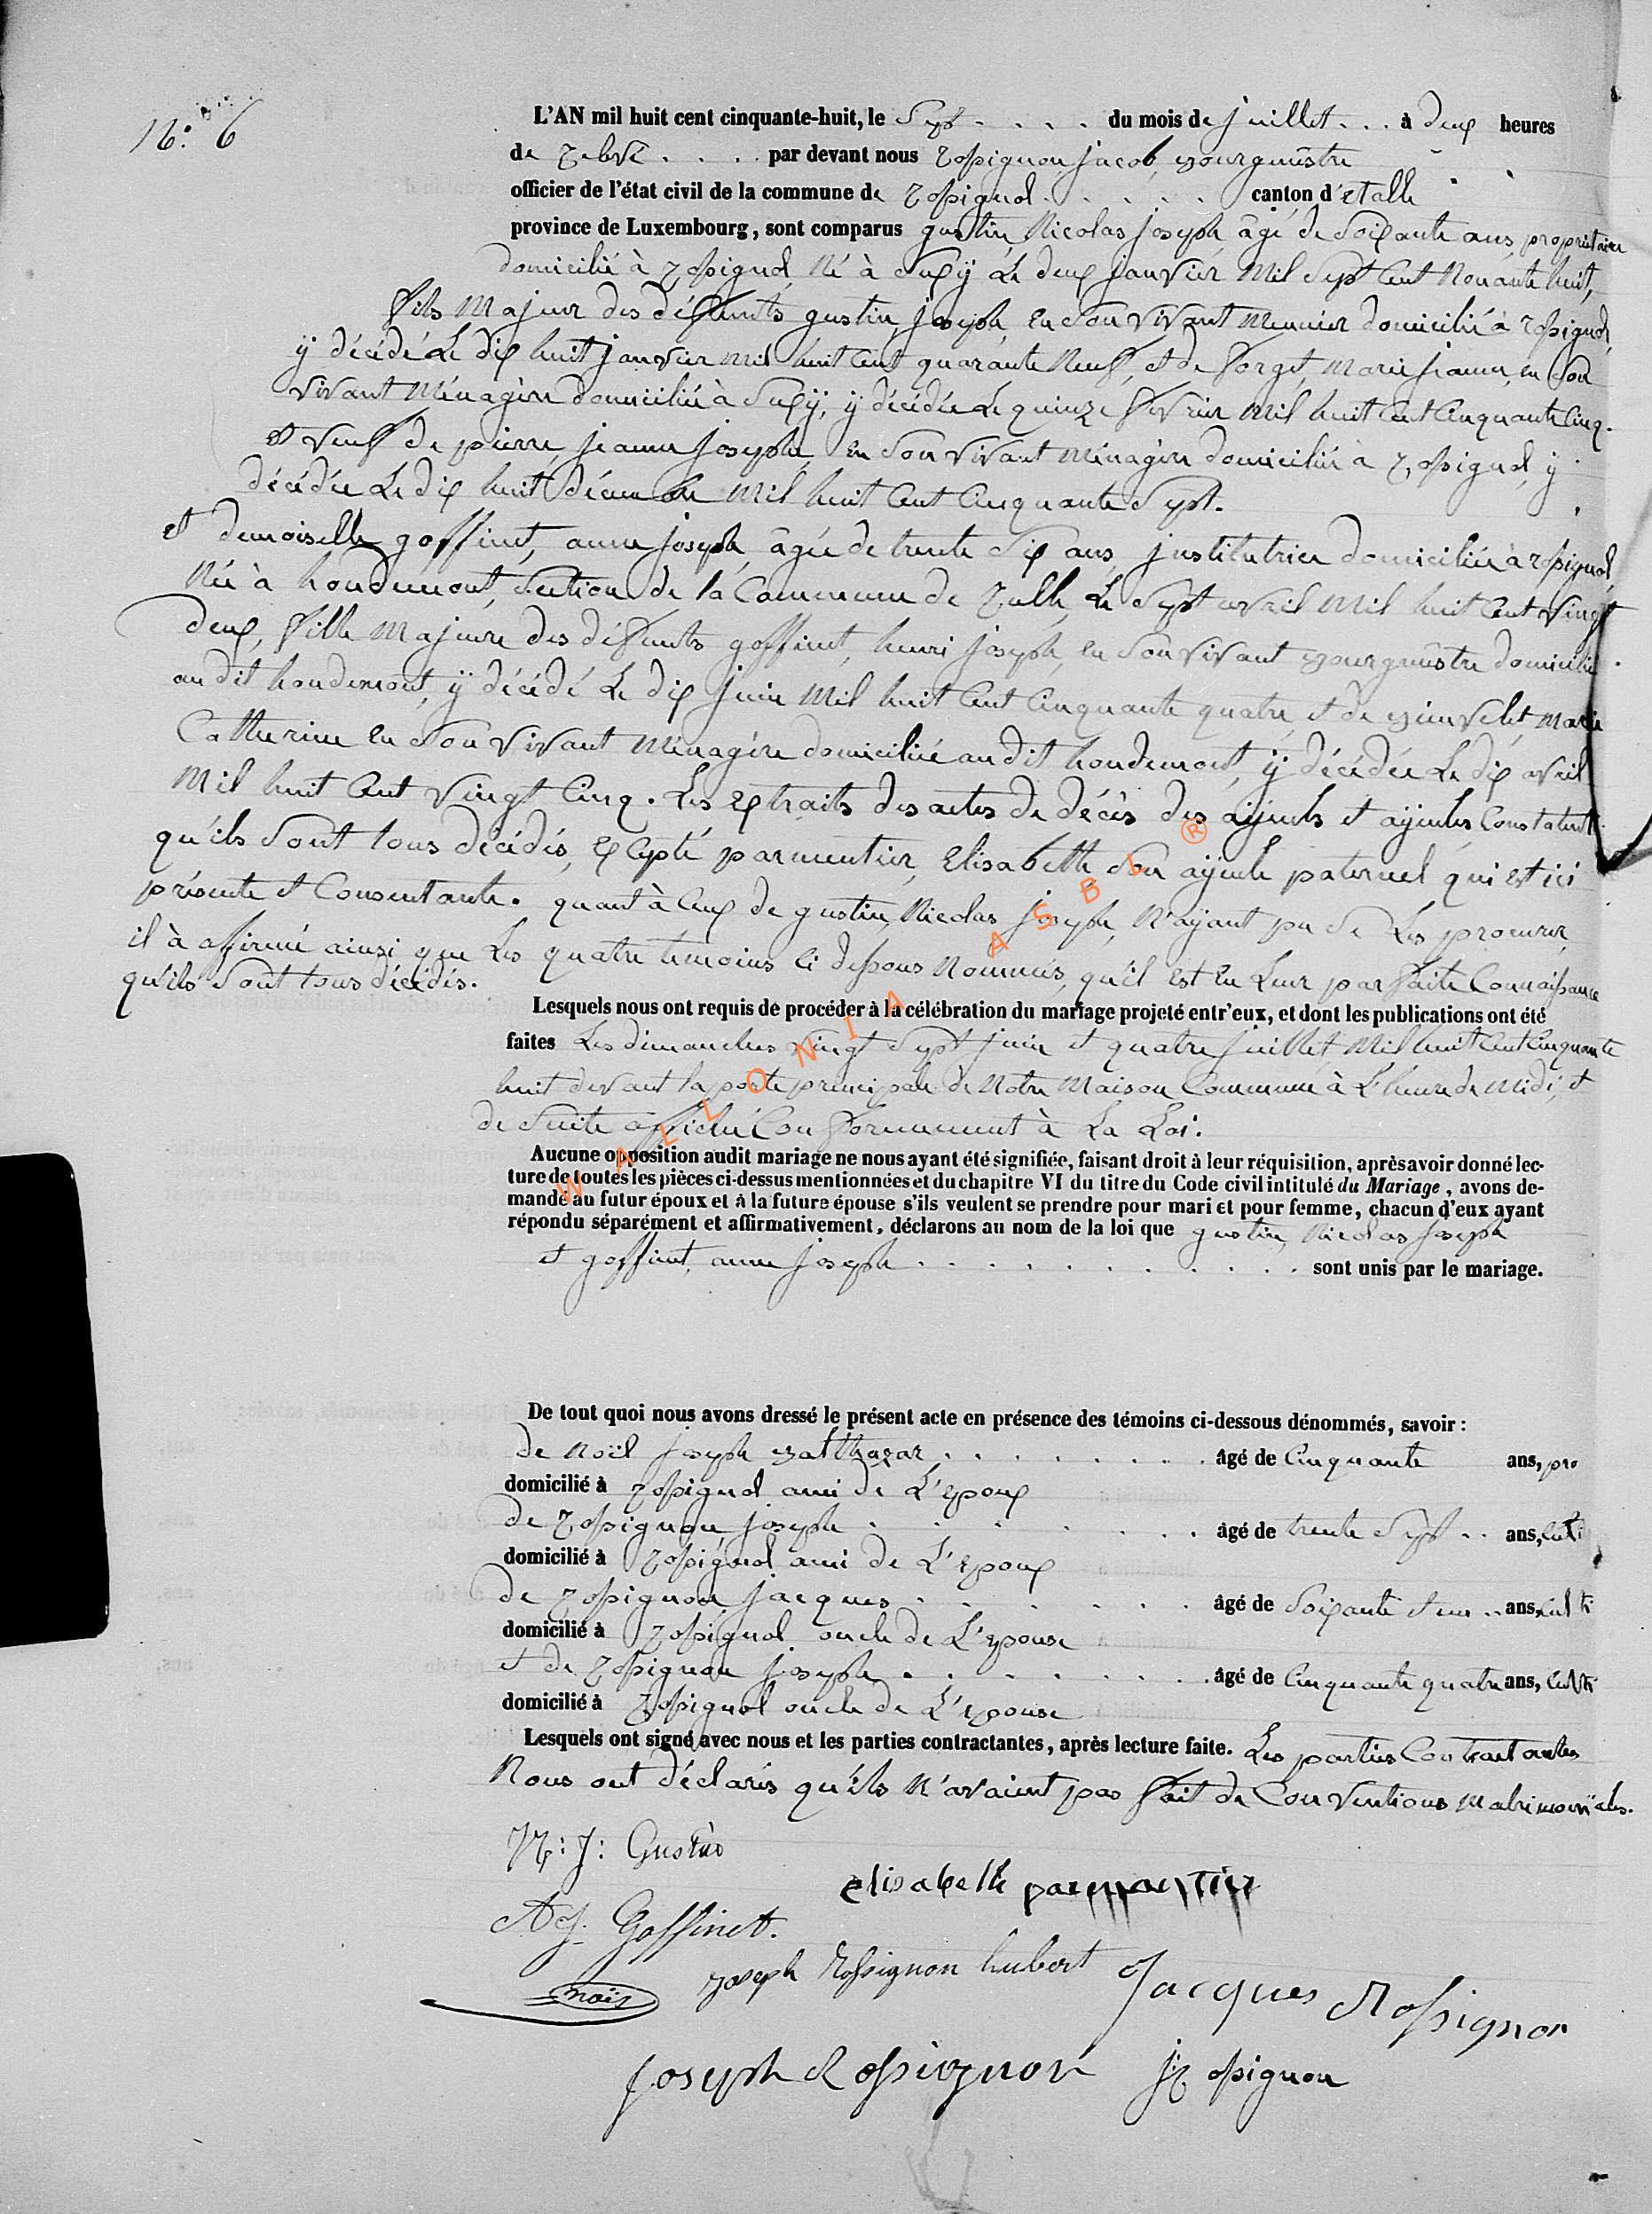 N.° 6
L'AN mil huit cent cinquante-huit, le Sept . . . . du mois de juillet . . . à deux heures
de relevé . . . . par devant nous Rossignon jacob, Bourgmêstre
officier de l'état civil de la commune de Rossignol . . . . . . canton d'Etalle
province de Luxembourg, sont comparus gustin, Nicolas joseph, âgé de Soixante ans, propriétaire
domicilié à Rossignol, Né à Suxÿ Le deux janvier Mil Sept Cent Nonante huit,
fils Majeur des défunts gustin, joseph en Son vivant Meunier domicilié à Rossignol,
ÿ décédé Le dix huit janvier Mil huit Cent quarante Neuf, et de forget, Marie jeanne, en Son
vivant Ménagère domiciliée à Suxÿ, ÿ décédée Le quinze février Mil huit Cent Cinquante Cinq.
et veuf de pierre, jeanne joseph, en Son vivant Ménagère domiciliée à Rossignol, ÿ
décédée Le dix huit décembre Mil huit Cent Cinquante Sept.
et demoiselle goffinet, anne joseph, âgée de trente Six ans, institutrice domiciliée à Rossignol,
Née à houdemont, Section de la Commune de Rulle, Le Sept avril Mil huit Cent vingt
deux, fille Majeure des défunts goffinet, henri joseph, en Son vivant Bourgmêstre domicilié
au dit houdemont, ÿ décédé Le dix juin Mil huit Cent Cinquante quatre, et de Bienvelet, Marie
Catherine en Son vivant Ménagère domiciliée au dit houdemont, ÿ décédée Le dix avril
Mil huit Cent vingt Cinq. Les extraits des actes de décès des aÿeuls et aÿeules Constatent
qu'ils Sont tous décédés, excepté parmentier, Elisabeth Son aÿeule paternel qui est ici
présente et Consentante. quant à Ceux de gustin, Nicolas joseph, N'aÿant pu Se Les procurer,
il à affirmé ainsi que Les quatre temoins Ci dessous Nommés, qu'il est en Leur parfaite Connaissance
qu'ils Sont tous décédés.
Lesquels nous ont requis de procéder à la célébration du mariage projeté entr'eux, et dont les publications ont été
faites Les dimanches vingt Sept juin et quatre juillet Mil huit Cent Cinquante
huit devant la porte principale de Notre Maison Commune à L'heure de Midi, et
de Suite affiché Conformement à La Loi.
Aucune opposition audit mariage ne nous ayant été signifiée, faisant droit à leur réquisition, après avoir donné lec-
ture de toutes les pièces ci-dessus mentionnées et du chapitre VI du titre du Code civil intitulé du Mariage, avons de-
mandé au futur époux et à la future épouse s'ils veulent se prendre pour mari et pour femme, chacun d'eux ayant
répondu séparément et affirmativement, déclarons au nom de la loi que gustin, Nicolas joseph
et goffinet, anne joseph . . . . . . . . . . . sont unis par le mariage.
De tout quoi nous avons dressé le présent acte en présence des témoins ci-dessous dénommés, savoir :
de Noël joseph Balthazar . . . . . . . âgé de Cinquante ans, pro
domicilié à Rossignol ami de L'Epoux
de Rossignon joseph . . . . . . . âgé de trente Sept . . ans, Culti
domicilié à Rossignol ami de L'Epoux
de Rossignon jacques . . . . . . . âgé de Soixante et un . . ans, Culti
domicilié à Rossignol oncle de L'Epouse
et de Rossignon joseph . . . . . . . âgé de Cinquante quatre ans, Culti
domicilié à Rossignol oncle de L'Epouse
Lesquels ont signé avec nous et les parties contractantes, après lecture faite. Les parties Contractantes
Nous ont déclarés qu'ils N'avaient pas fait de Conventions Matrimoniales.
N: J: Gustin
elisabeth parmantier
A J. Goffinet.
Noël
Joseph Rossignon hubert
Jacques Rossignon
joseph Rossignon
j Rossignon
WALLONIA ASBL ®